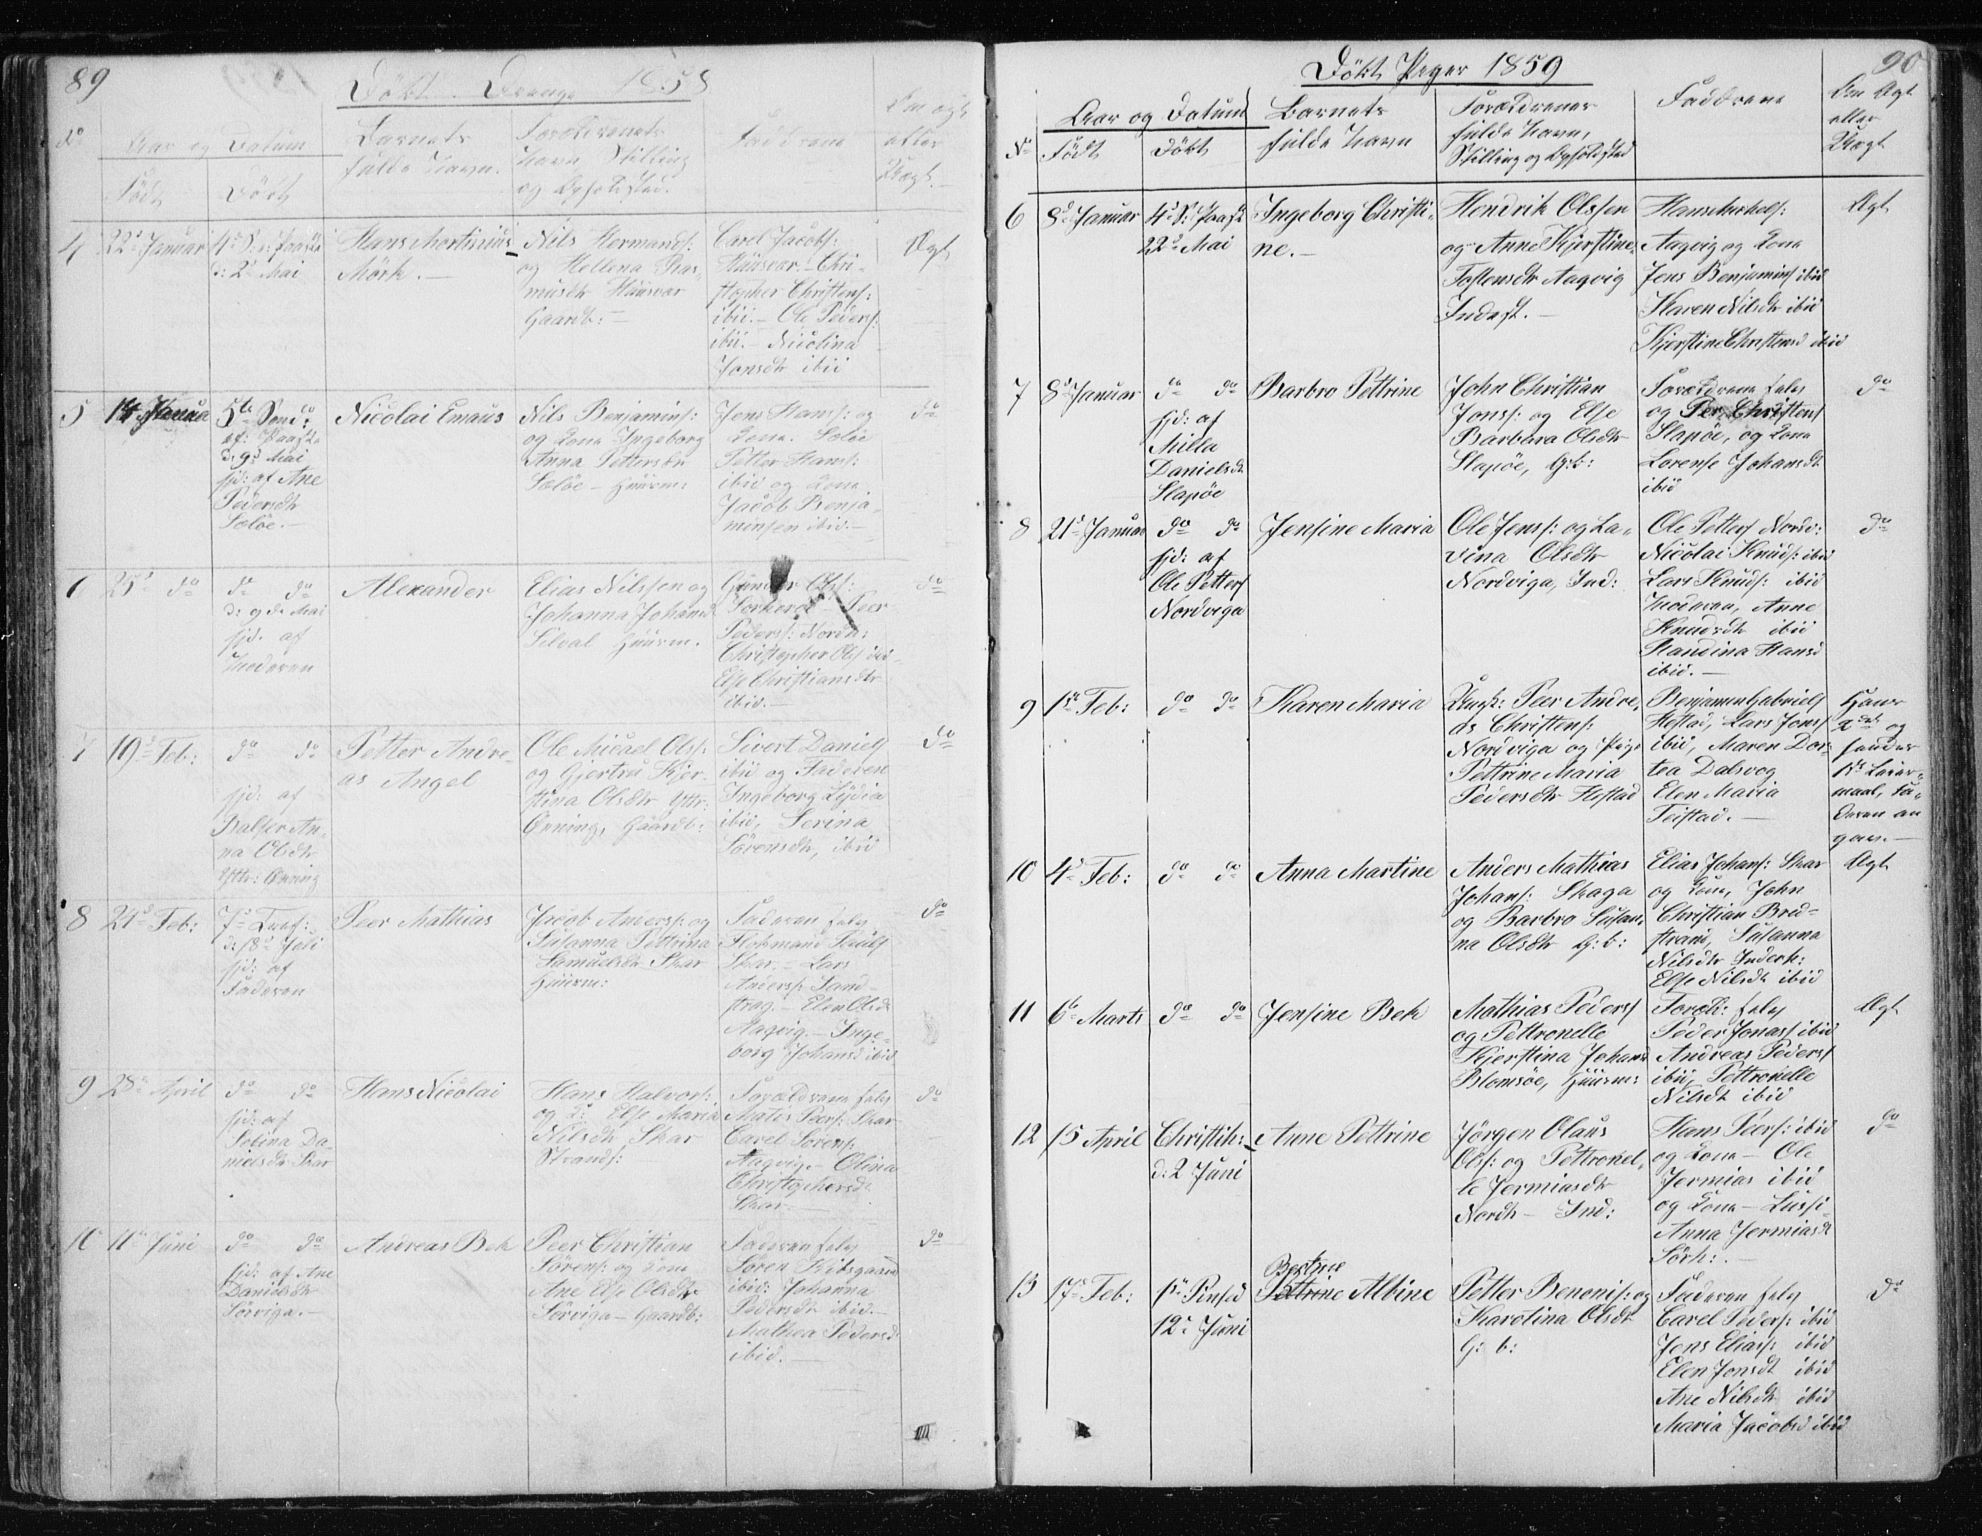 89
Döbt Drenge 1858
No
Aar og Datum
Födt
Döbt
Barnets
fulde Navn.
Forældrenes
Navn Stilling
og Opholdsted.
Faddrene
Om ægt
eller
Uægt.
4
22d Januar
4d S. e: Paaske
d: 2d Mai
Hans Mortinius
Mörk.
Nils Hermands:
og Hellena Ras,
musdtr Huusvær
Gaardb:
Carel Jacobs:
Huusvær. Chri-
stopher Christens:
ibid. Ole Peders:
ibid. Nicolina
Jonsdtr ibid
Ægt
5
14 Janua
5te Sønd:
ef: Paaske
d: 9d Mai
hjd: af Ane
Pedersdtr
Soløe.
Nicolai Emaus
Nils Benjamins:
og Kona Ingeborg
Anna Pettersdtr
Soløe Huusm:
Jens Hans: og
Kona. Soløe
Petter Hans:
ibid og Kona
Jacob Benja-
minsen ibid.
do
6
25d do
do do
d: 9de Mai
hjd. af
Moderen
Alexander
Elias Nilssen og
Johanna Johansd
Silval Huusm.
Gunder Ols:
Peer
Peders: Nordh:
Christopher Ols ibi-
Else Christiansdtr
ibid.
do
7
19d Feb:
do do
hjd: af
An-
na Olsdtr
Yttr: Qvning
Petter Andre-
as Angel
Ole Micael Ols:
og Gjertru Kjer-
stina Olsdtr Yttr:
Qvning, Gaardb:
Sivert Daniels
ibid og Faderen
Ingeborg Lydia
ibid, Serina
Sørensdtr, ibid
do
8
24d Feb:
hjd: af
Faderen
Peer Mathias
Jacob Anders: og
Susanna Pettrina
Samuelsdtr Skar
Huusm:
Faderen selv
Skar. Lars
Anders: Sand-
Elen Olsdt
Aaqvig. Inge-
borg Johansd ibid
do
9
28de April
do do
hjd: af
Da
nielsdtr Skar
Hans Nicolai
Hans Halvors:
og K: Else Maria
Nilsdtr Skar
Strands:
Forældrene selv
Mats Peers: Skar
Carel Sørens:
Aaqvig. Olina
Christophersd
Skar
do
10
11te Juni
do do
hjd: af Ane
Danielsdtr
Sørviga.
Andreas Bek
Peer Christian
Sørens: og Kone
Ane Else Olsdtr
Sørviga Gaardb:
Faderen selv
Søren
ibid: Johanna
Pedersdt ibid.
Mathea Pedersd
ibid.
do
90
Döbt Piger 1859
No
Aar og Datum
Födt
Döbt
Barnets
fulde Navn
Forældrenes
fulde Navn,
Stilling og Opholdsted
Faddrene
Om Ægt
eller
Uægt
6
8d Januar
4d S: Paask
22d Mai
Ingeborg Christi-
ne.
Hendrik Olssen
og Anne Kjerstine
Tostensdtr Aaqvig
Inderst.
Hans
Aaqvig og Kona
Jens Benjamins ibid
Karen Nilsdtr ibid
Kjerstine Christensd ibid
Ægt
7
8d Januar
do do
hjd: af
Milla
Danielsdt
Slapöe
Barbro Pettrine
John Christian
Jons: og Else
Barbara Olsdtr
Slapöe, G:b:
Forældrene selv
og Per Christens
Slapöe, og Kona
Lorense Johansdt
ibid
do
8
21d Januar
do do
hjd: af
Ole Petters
Nordviga
Jensine Maria
Ole Jens: og La-
vina Olsdtr
Nordviga, Ind:
Ole Petters Nordv:
Nicolai Knuds: ibid
Lars Knuds: ibid
Moderen, Anne
Knudsdtr ibid
Randina Hansd
ibid.
do
9
1ste Feb:
do do
Karen Maria
Ungk: Peer Andre,
as Christens:
Nordviga og Pige
Pettrine Maria
Pedersdtr Hestad
Benjamin Gabriels
Hestad, Lars Jons
ibid, Maren Dor-
tea Dalsvog
Elen Maria
Teistad.
Hans
2det og
hendes
1ste Leier-
maal, Fa-
deren an
given.
10
4d Feb:
do do
Anna Martine
Anders Mathias
Johans: Skaga
og Barbro Susan-
na Olsdtr G:b:
Elias Johans: Skar
og Kone, John
Christian Bred-
strand, Susanna
Nilsdtr Inderh:
Else Nilsdt ibid
Ægt
11
6te Marts
do do
Jensine Bek
Mathias Peders
og Pettronelle
Kjerstina Johans
Blomsøe, Huusm:
Foræld: selv
Peder Jonas: ibid
Andreas Peders
ibid, Pettronelle
Nilsdt ibid
Ægt
12
15 April
Christih:
d: 2 Juni
Anne Pettrine
Jörgen Olaus
Ols: og Pettronel,
le Jermiasdtr
Nordh Ind:
Hans Peers: ibid
og Kona Ole
Jermias ibid
og Kona Lussi-
Anna Jermiasdt
Sørh:.
do
13
17d Feb:
1ste Pinsed
12te Juni
Bertine
Pettrine Albine
Petter Benonis: og
Karolina Olsdt
G: b:
Faderen selv
Carel Peders: ibid
Jens Elias: ibid
Elen Jonsdt ibid
Ane Nilsdtr ibid
Maria Jacobsd ibid
do